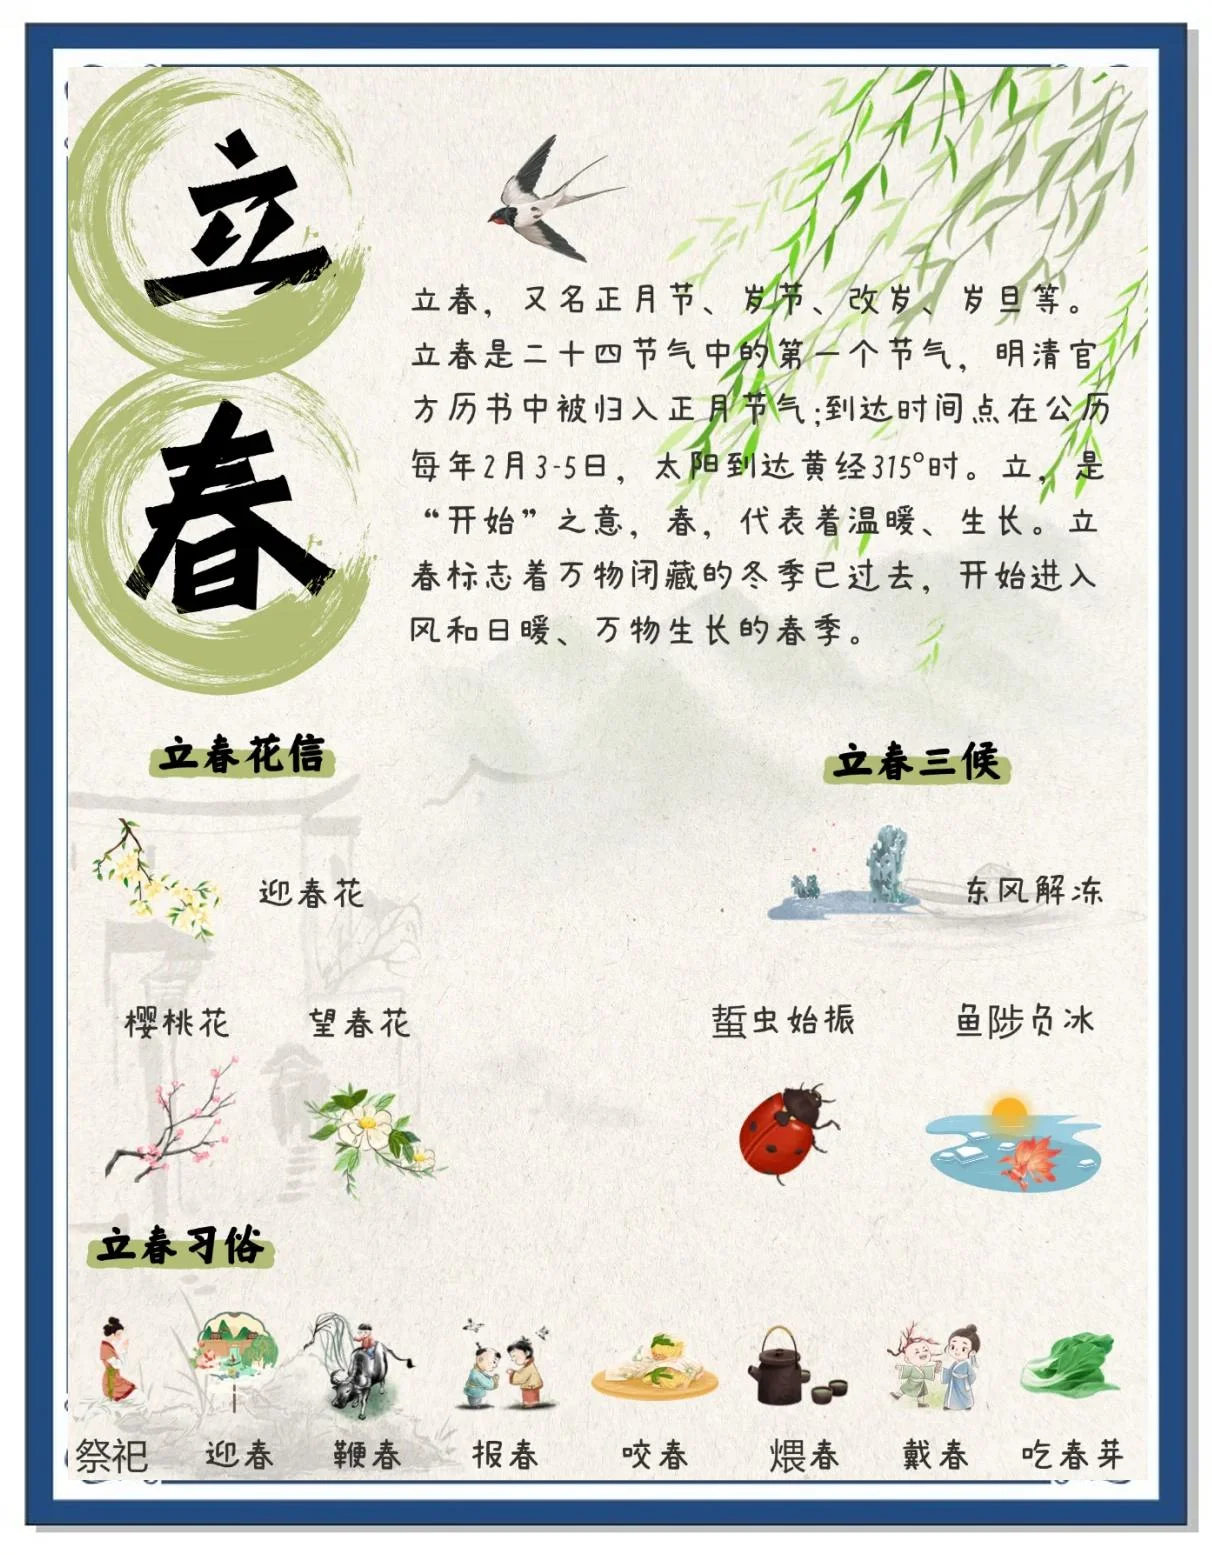 立
春
立春，又名正月节、岁节、改岁、岁旦等。
立春是二十四节气中的第一个节气，明清官
方历书中被归入正月节气;到达时间点在公历
每年2月3-5日，太阳到达黄经315°时。立，是
“开始”之意，春，代表着温暖、生长。立
春标志着万物闭藏的冬季已过去，开始进入
风和日暖、万物生长的春季。
立春花信
迎春花
樱桃花
望春花
立春三候
东风解冻
蜇虫始振
鱼陟负冰
立春习俗
祭祀
迎春
鞭春
报春
咬春
煨春
戴春
吃春芽